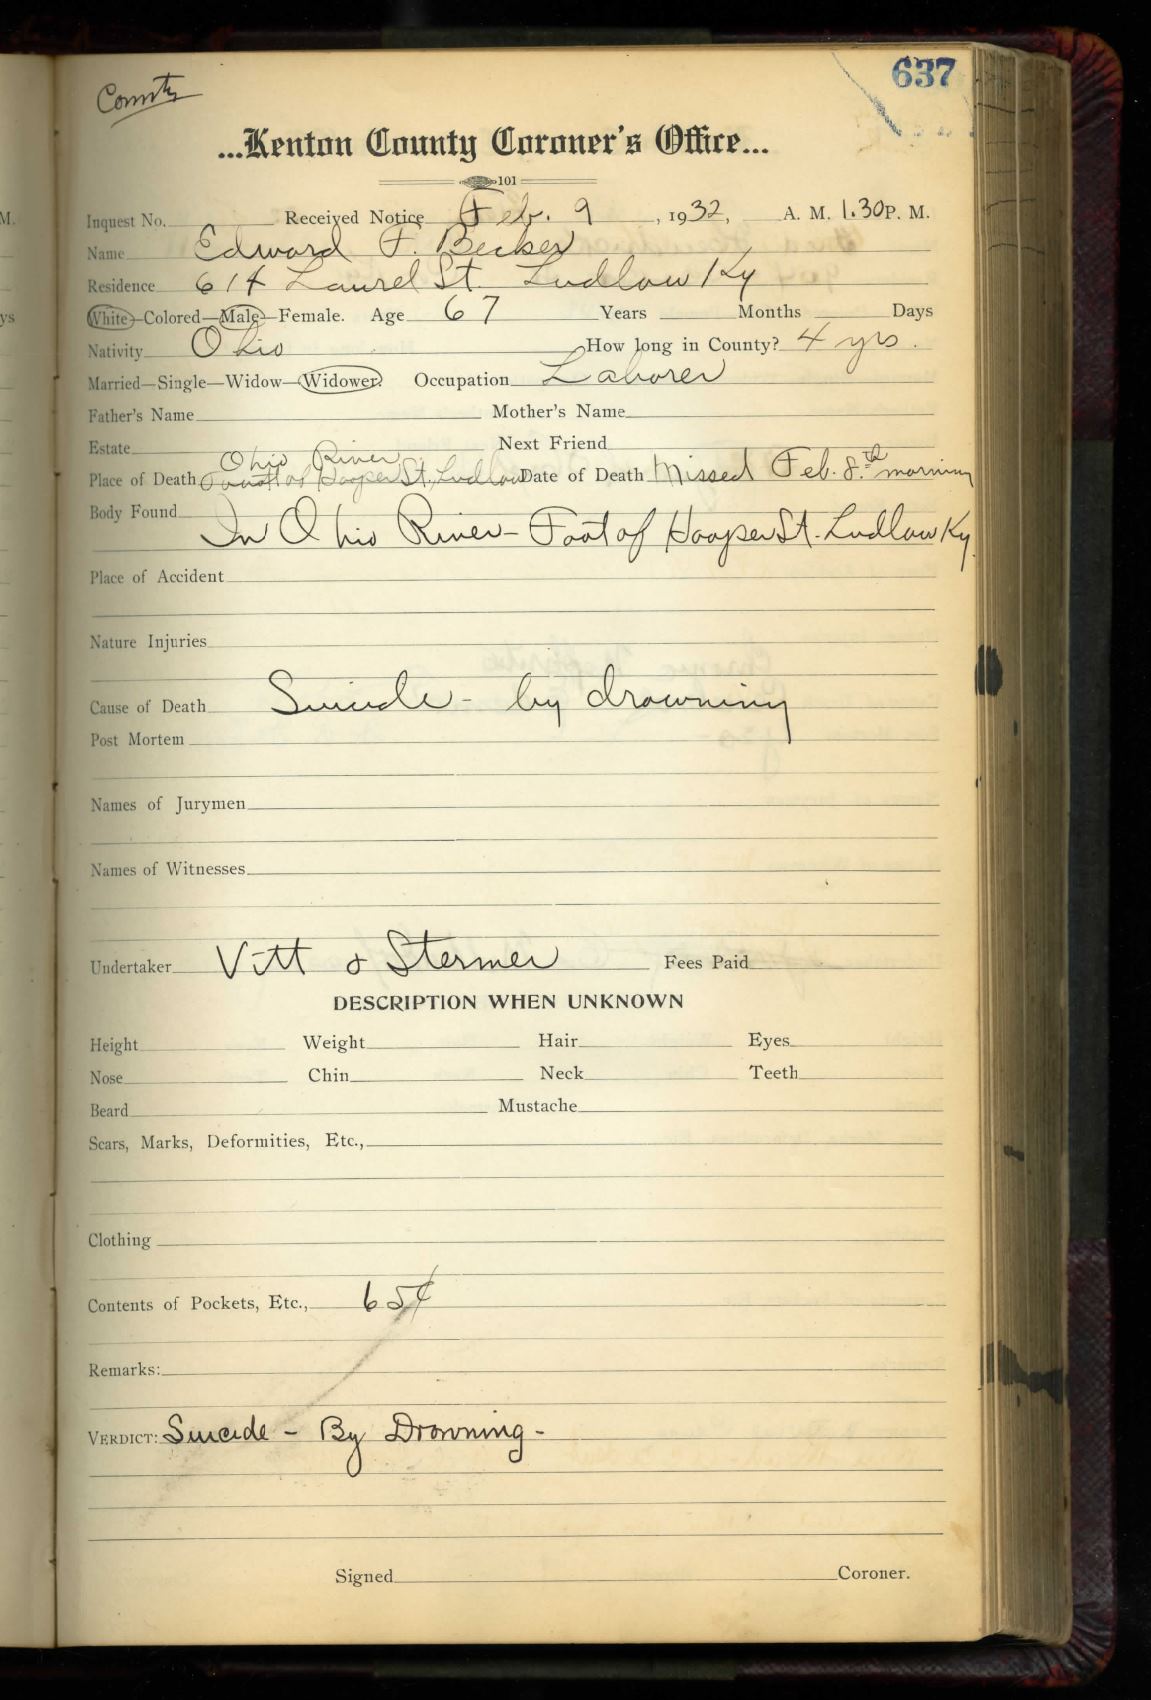 637
County
...Kenton County Coroner's Office...
101
Inquest No. Received Notice Feb. 9, 1932, A. M. 1.30 P. M.
Name Edward F. Becker
Residence 614 Laurel St. Ludlow Ky
White—Colored—Male—Female. Age 67 Years Months Days
Nativity Ohio How long in County? 4 yrs.
Married—Single—Widow—Widower. Occupation Laborer
Father's Name Mother's Name
Estate Next Friend
Ohio River
Place of Death Foot of Hooper St., Ludlow Date of Death Missed Feb. 8th morning
Body Found
In Ohio River - Foot of Hooper St. Ludlow Ky.
Place of Accident
Nature Injuries
Cause of Death Suicide - by drowning
Post Mortem
Names of Jurymen
Names of Witnesses
Undertaker Vitt & Stermer Fees Paid
DESCRIPTION WHEN UNKNOWN
Height Weight Hair Eyes
Nose Chin Neck Teeth
Beard Mustache
Scars, Marks, Deformities, Etc.,
Clothing
Contents of Pockets, Etc., 65¢
Remarks:
VERDICT: Suicide - By Drowning -
Signed Coroner.